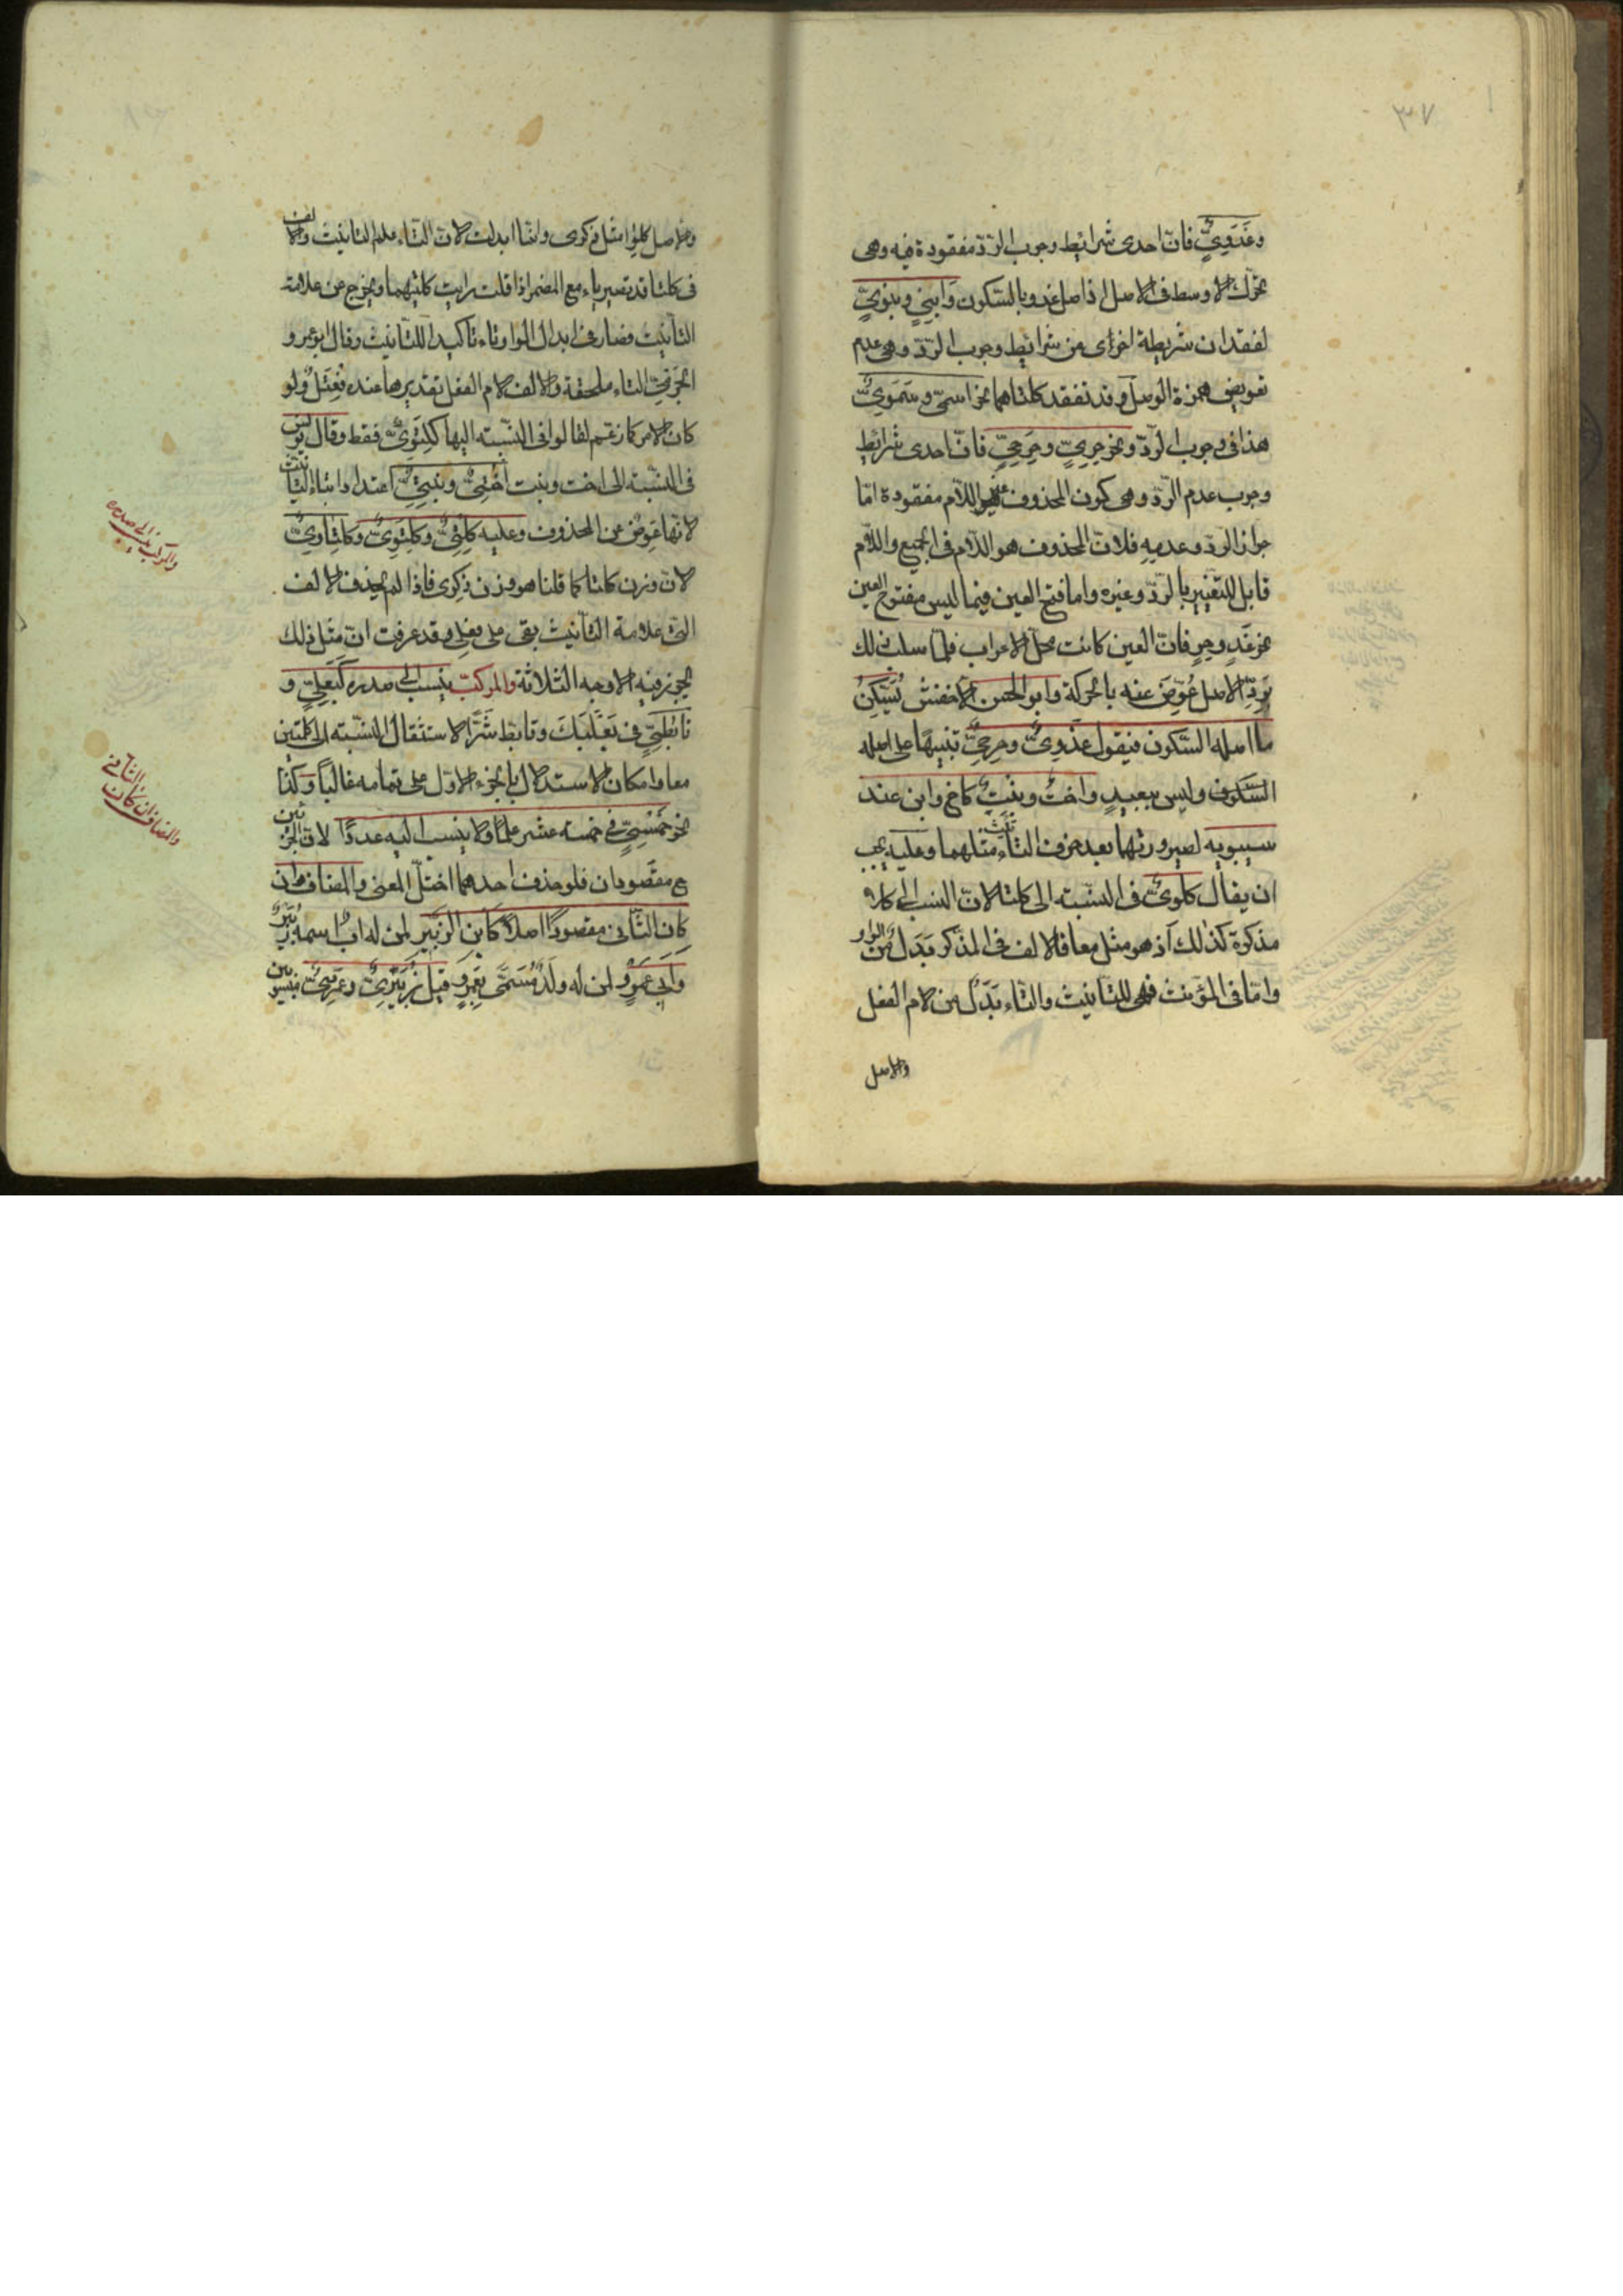 ٣٧
وغَدَوِيٌّ فانّ احدى شرائط وجوب الرّدّ مفقودة فيه وهى
تحرّك الاوسط فى الاصل اذ اصل غد وبالسّكون وَابنِيٍّ وبَنَوِيٍّ
لفقدان شريطة اخرى من شرائط وجوب الرّدّ وهى عدم
تعويض همزة الوصل وقد تفقد كلتاهما نحو اسمىّ وسَمَوِىٌّ
هذا فى وجوب الرّدّ ونحو حِرِىٍّ وحِرَحِىٍّ فانّ احدى شرائط
وجوب عدم الرّدّ وهى كون المحذوف غير اللام مفقودة امّا
جواز الرّدّ وعدمه فلانّ المحذوف هو اللّام فى الجميع واللّام
قابل للتّغيير بالرّدّ وغيره واما فتح العين فيما ليس مفتوح العين
نحو غَدٍ وحِرٍ فانّ العين كانت محلّ الاعراب فلمّا سلب ذلك
بَردِّ الاصل عُوِّضَ عنه بالحركة وابو الحسن الاخفش يُسَكِّنُ
ما اصله السّكون فيقول غَدْوِىٌّ وحِرْحِىٌّ تنبيهًا على اصله
السّكون وليس ببعيدٍ واختٌ وبنتٌ كاخ وابن عند
سيبويه لصيرورتهما بعد حذف التاء مثلهما وعليه يجب
ان يقال كلَوِىٌّ فى النسّبة الى كلتا لانّ النسب الى كلا
مذكرة كذلك اذ هو مثل معا فالالف فى المذكر بَدَل من الواو
وامّا فى المؤنث فهى للتّانيث والتّاء بَدَلٌ من لام الفعل
والاصل
والاصل كلوا مثل ذكرى وانّما ابدلت لانّ التّاء علم التانيث والالف
فى كلتا قد تصير ياء مع المضمر اذا قلت رايت كلتيهما فتخرج عن علامة
التأنيث فصار فى ابدال الواو تاء تاكيدا للتأنيث وقال ابو عمرو
الجَرمِىّ التاء ملحقة والالف لام الفعل تقديرها عنده فِعْتَلٌ ولو
كان الامر كما زعم لقالوا فى النّسبة اليها كِلتَوِىٌّ فقط وقال يونس
فى النسّبة الى اخت وبنت اُختِىٌّ وبِنتِىٌّ اعتدادا بتاء التّانيث
لانّها عِوَضٌ عن المحذوف وعليه كِلتِىٌّ وكِلتَوِىٌّ وكِلتاوِىٌّ
لانّ وزن كلتا كما قلنا هو وزن ذِكرى فاذا لم يحذف الالف
التى علامة التأنيث بقى على فعلى وقد عرفت انّ مثل ذلك
يجوز فيه الاوجه الثلاثة والمركّب ينسب الى صدره كَبَعلِىٍّ و
تأبّطِىٍّ فى بَعْلَبَكَ وتأبّط شَرًّا لاستثقال النسّبة الى كلمتين
معا وامكان الاستدلال بالجزء الاوّل على تمامه غالبًا وكذا
نحو خَمْسِىٍّ فى خمسة عشر علمًا ولا ينسب اليه عددًا لانّ الجزئين
ح مقصودان فلو حذف احدهما اختلّ المعنى والمضاف ان
كان الثّانى مقصودًا اصلًا كَابن الزبير لمن له ابٌ اسمه زُبَيْرٌ
وابى عَمرٍو لمن له ولَدٌ مُسَمّى بِعَمرٍو قيل زُبَيرِىٌّ وعَمرِىٌّ فينسبون
والمركب ينسب الى صدره
والمضاف ان كان الثانى